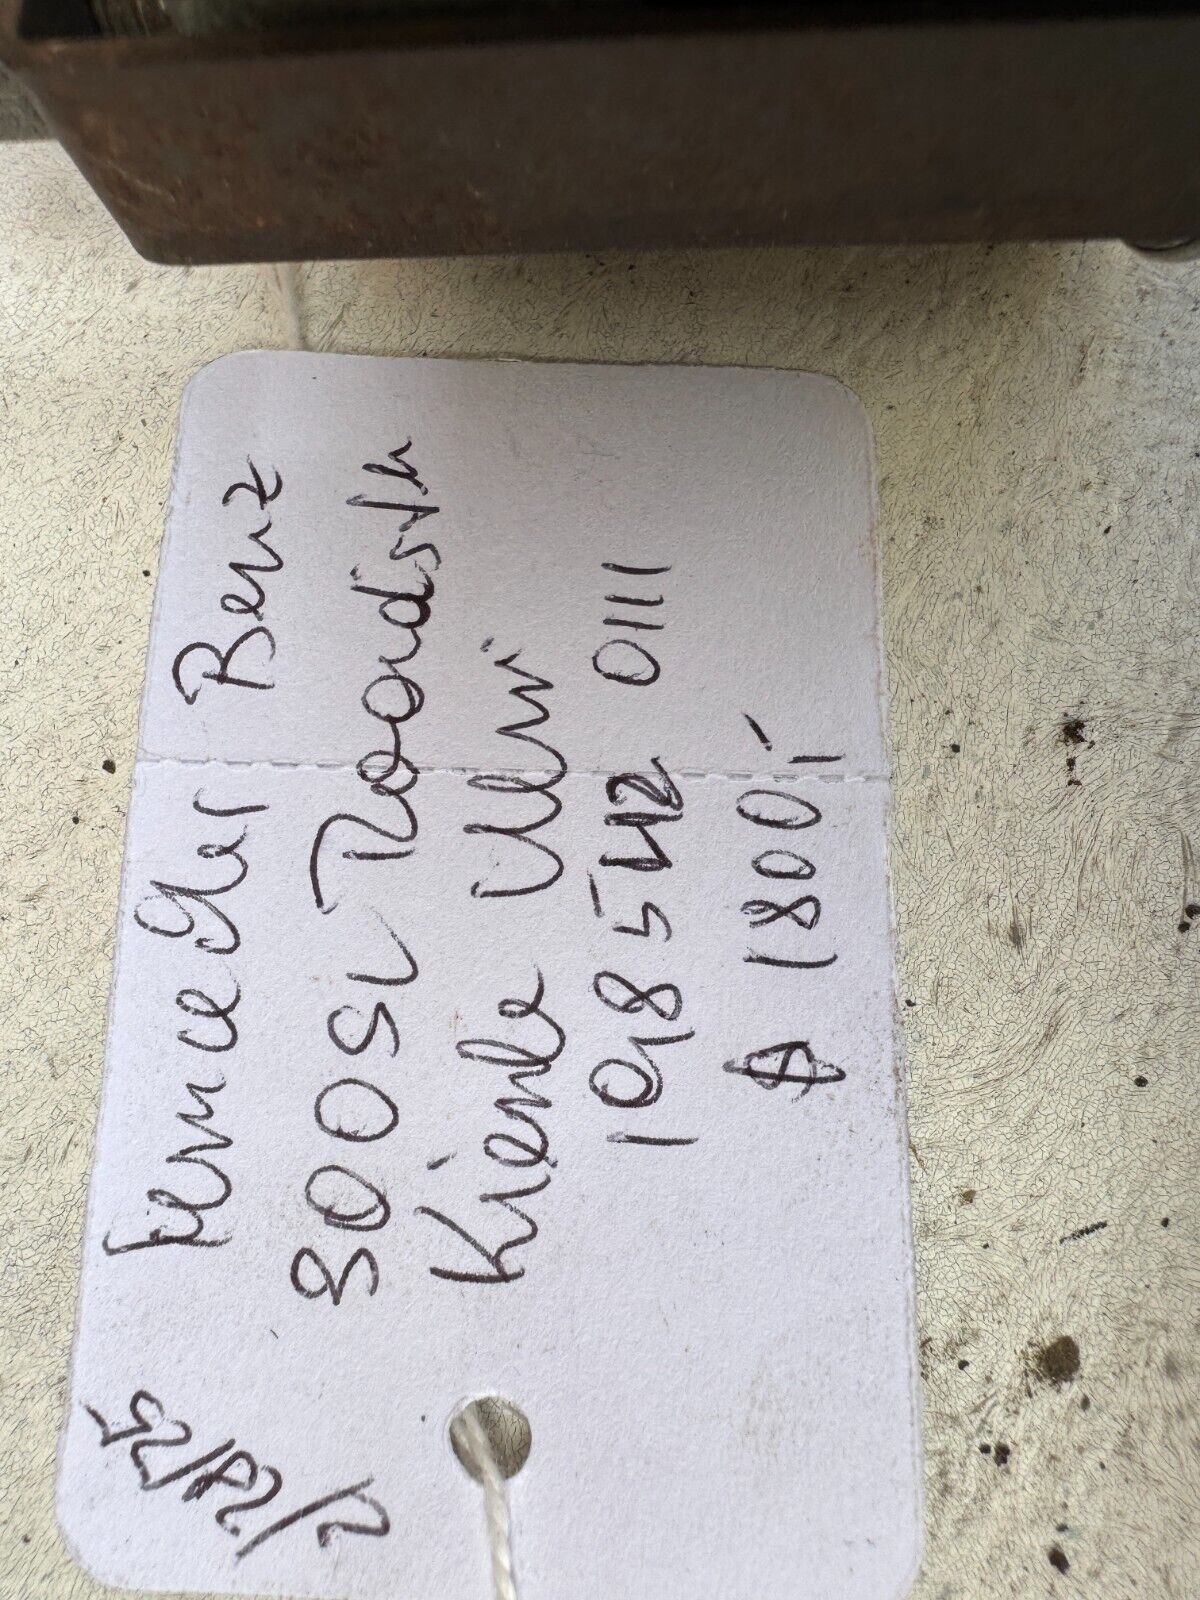 Mercedes Benz
300SL Roadster
Kienle Uhr
198 542 0111
1800,-